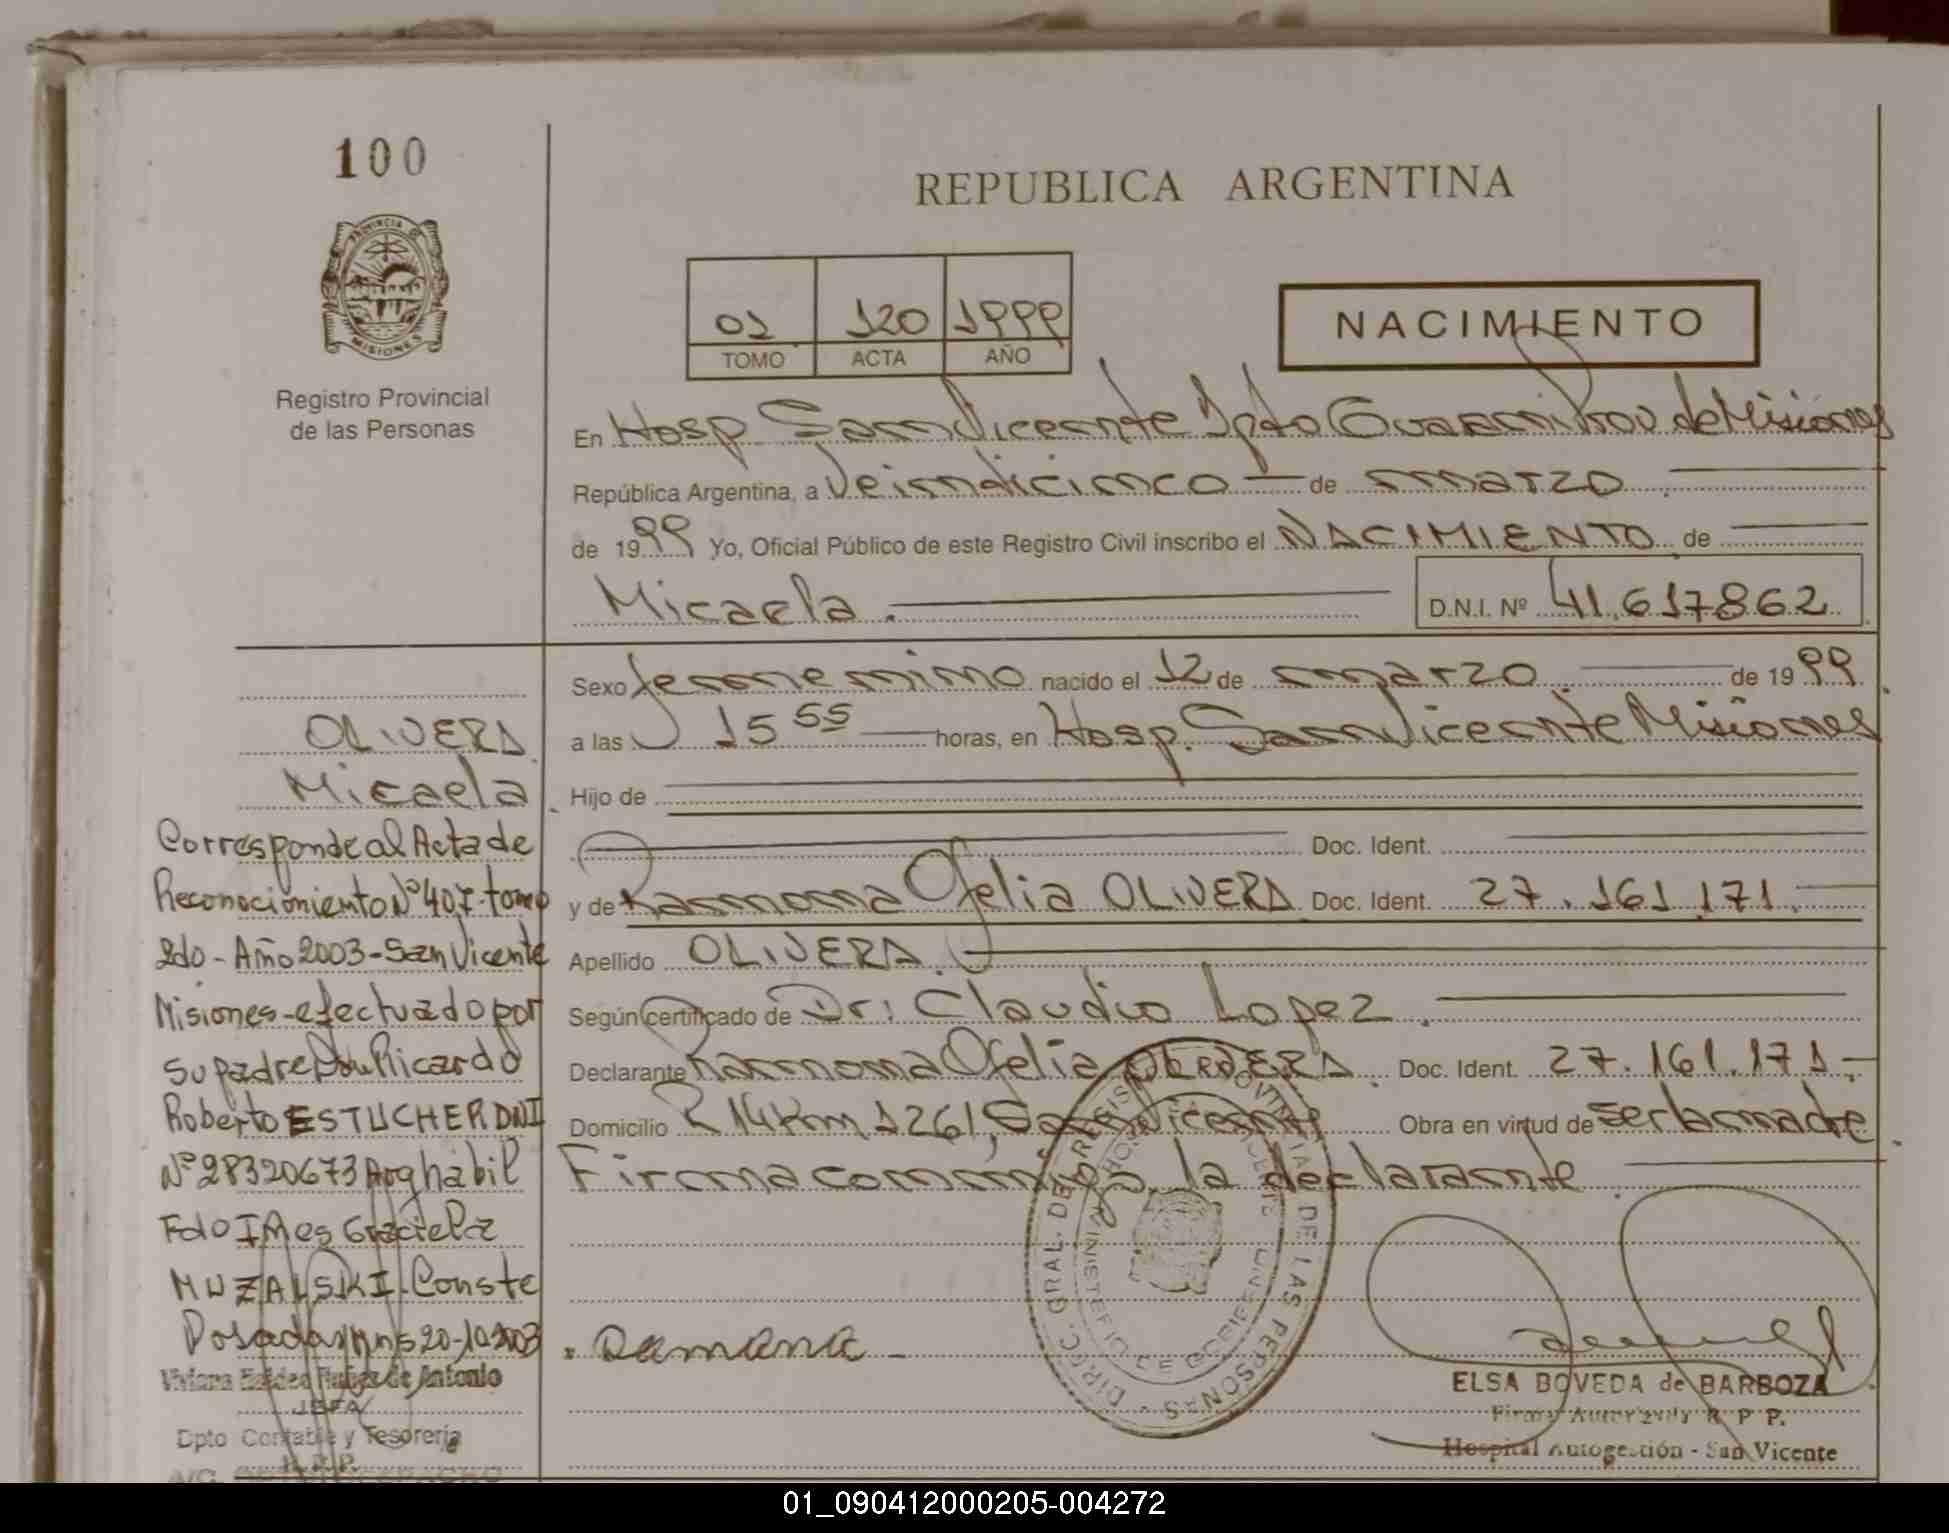 100
REPUBLICA ARGENTINA
PROVINCIA DE
MISIONES
Registro Provincial
de las Personas
01 120 1999
TOMO ACTA AÑO
NACIMIENTO
En Hosp. San Vicente Dpto Guarani Prov de Misiones
República Argentina, a Veinticinco — de marzo
de 1999 Yo, Oficial Público de este Registro Civil inscribo el NACIMIENTO de
Micaela. D.N.I. Nº 41.617862
Sexo femenino nacido el 12 de marzo de 1999
a las 15 55 horas, en Hosp. San Vicente Misiones
Hijo de
Doc. Ident.
y de Ramona Ofelia OLIVERA Doc. Ident. 27.161.171.
Apellido OLIVERA.
Según certificado de Dr: Claudio Lopez.
Declarante Ramona Ofelia OLIVERA. Doc. Ident. 27.161.171.-
Domicilio R 14 Km 1261, San Vicente Obra en virtud de ser la madre
Firma conmigo la declarante.
Ramona
OLIVERA
Micaela
Corresponde al Acta de
Reconocimiento Nº 407-tomo
2do-Año 2003-San Vicente
Misiones-efectuado por
su padre Don Ricardo
Roberto ESTUCHER DNI
Nº 28320673 Arg habil
Fdo Ines Graciela
MUZALSKI-Conste
Posadas Mns 20-10-2003
Viviana de Antonio
JEFA
Dpto Contable y Tesoreria
R.P.P.
DIREC. GRAL. DEL REGISTRO PROVINCIAL DE LAS PERSONAS
MINISTERIO DE GOBIERNO
ELSA BOVEDA de BARBOZA
Firma Autorizada R P P.
Hospital Autogestión - San Vicente
01_090412000205-004272